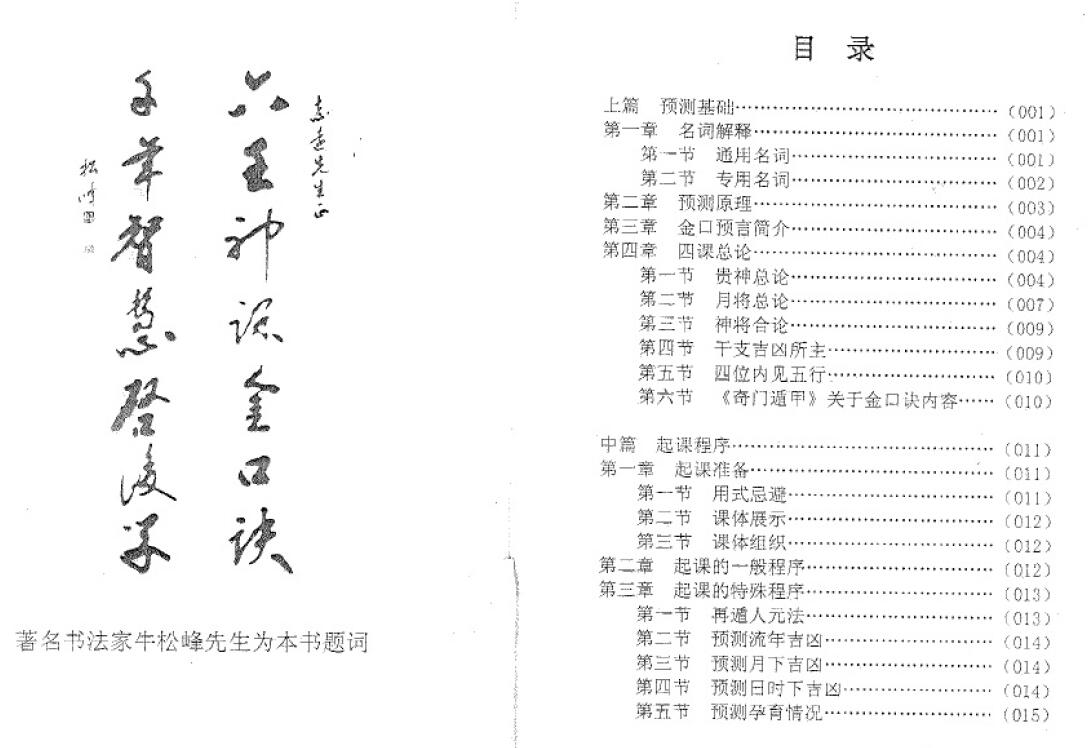 先生正
六壬神课金口诀
千年智慧啓後学
松峰
著名书法家牛松峰先生为本书题词
目 录
上篇 预测基础……………………………………(001)
第一章 名词解释…………………………………(001)
第一节 通用名词……………………………(001)
第二节 专用名词……………………………(002)
第二章 预测原理…………………………………(003)
第三章 金口预言简介……………………………(004)
第四章 四课总论…………………………………(004)
第一节 贵神总论……………………………(004)
第二节 月将总论……………………………(007)
第三节 神将合论……………………………(009)
第四节 干支吉凶所主………………………(009)
第五节 四位内见五行………………………(010)
第六节 《奇门遁甲》关于金口诀内容……(010)
中篇 起课程序……………………………………(011)
第一章 起课准备…………………………………(011)
第一节 用式忌避……………………………(011)
第二节 课体展示……………………………(012)
第三节 课体组织……………………………(012)
第二章 起课的一般程序…………………………(012)
第三章 起课的特殊程序…………………………(013)
第一节 再遁人元法…………………………(013)
第二节 预测流年吉凶………………………(014)
第三节 预测月下吉凶………………………(014)
第四节 预测日时下吉凶……………………(014)
第五节 预测孕育情况………………………(015)